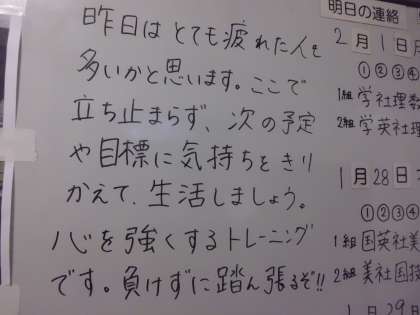 昨日はとても疲れた人も
多いかと思います。ここで
立ち止まらず、次の予定
や目標に気持ちをきり
かえて、生活しましょう。
心を強くするトレーニング
です。負けずに踏ん張るぞ!!
明日の連絡
2月1日
①②③④
1組 学社理数
2組 学英社理
1月28日
①②③④
1組 国英社美
2組 美社国技
1月29日